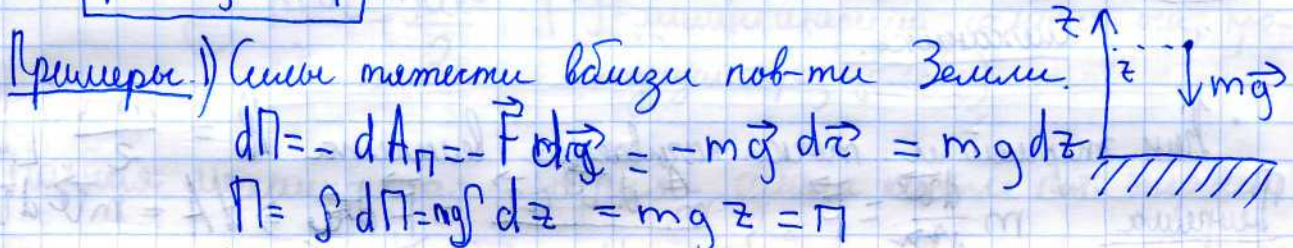 Примеры. 1) Силы тяжести вблизи пов-ти Земли.
z
z
m\vec{g}
dП = - dA_П = - \vec{F} d\vec{r} = - m\vec{g} d\vec{r} = mg dz
П = ∫ dП = mg ∫ dz = mgz = П